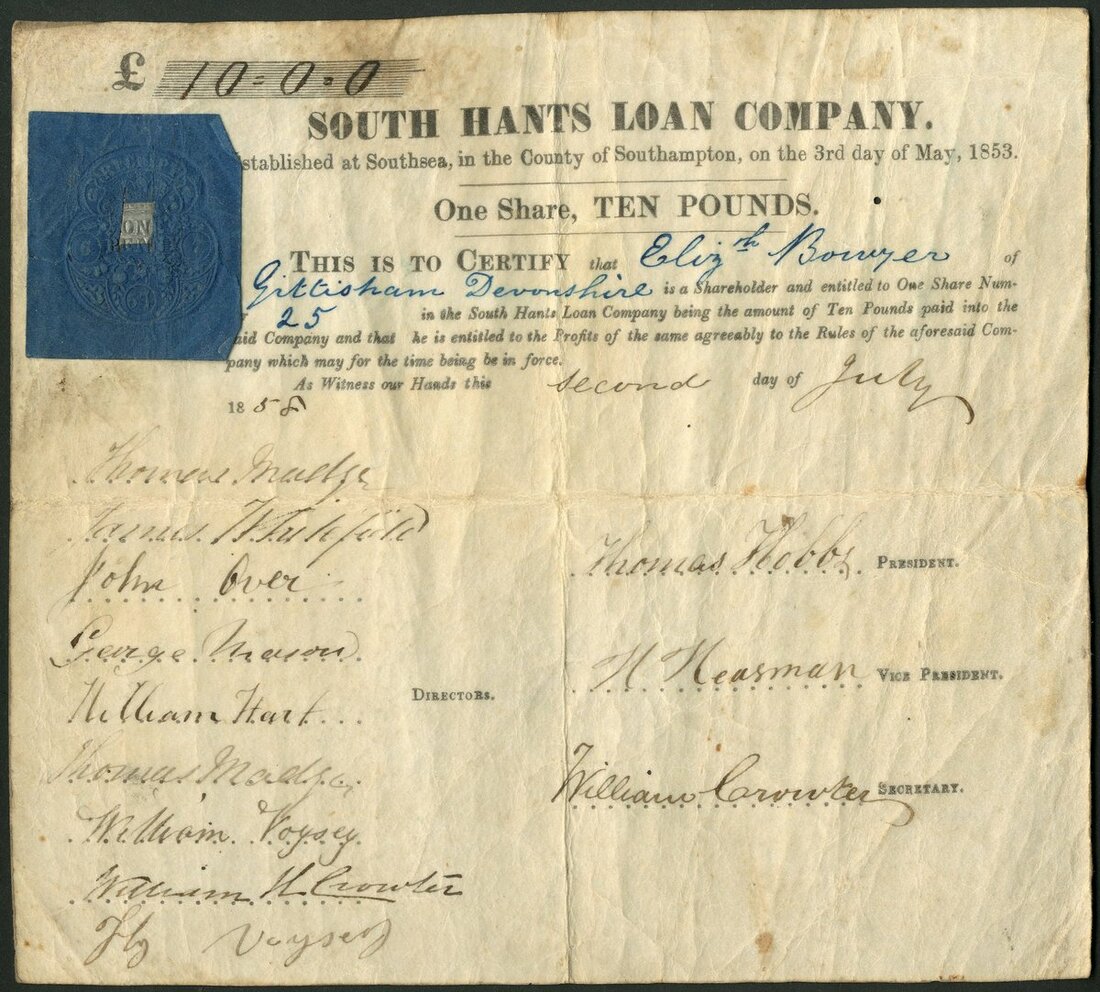 £ 10=0=0
SOUTH HANTS LOAN COMPANY.
stablished at Southsea, in the County of Southampton, on the 3rd day of May, 1853.
One Share, TEN POUNDS.
ON
THIS IS TO CERTIFY that Elizth Bowyer of
Gittisham Devonshire is a Shareholder and entitled to One Share Num-
25 in the South Hants Loan Company being the amount of Ten Pounds paid into the
aid Company and that he is entitled to the Profits of the same agreeably to the Rules of the aforesaid Com-
pany which may for the time being be in force.
As Witness our Hands this second day of July
1858
Thomas Madge
James
John Over
Thomas Hobbs PRESIDENT.
George Mason
H Heasman VICE PRESIDENT.
William Hart
DIRECTORS.
Thomas Madge
William Crowter SECRETARY.
William Voysey
William H Crowter
Voysey